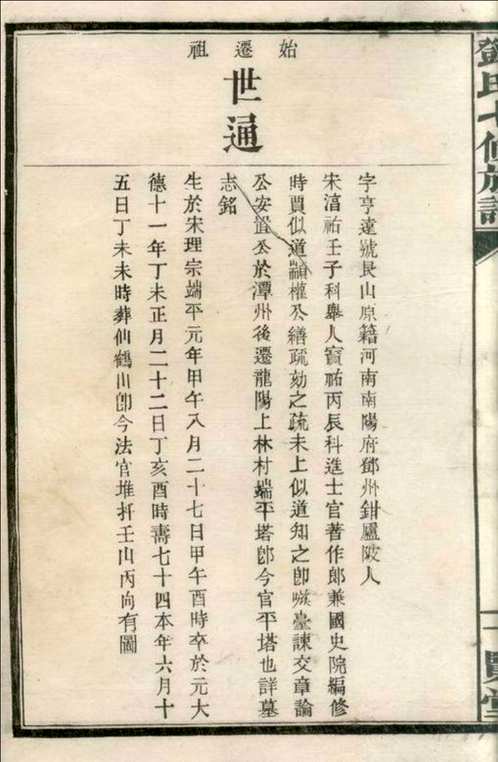 鄧氏七修族譜
賢堂
始遷祖
世通
字亨達號艮山原籍河南南陽府鄧州鉗廬陂人
宋湻祐壬子科舉人寳祐丙辰科進士官著作郎兼國史院編修
時賈似道顓權公繕疏劾之疏未上似道知之卽嗾臺諫交章論
公安置公於潭州後遷龍陽上林村端平塔卽今官平塔也詳墓
志銘
生於宋理宗端平元年甲午八月二十七日甲午酉時卒於元大
德十一年丁未正月二十二日丁亥酉時壽七十四本年六月十
五日丁未未時葬仙鶴山卽今法官堆扦壬山丙向有圖